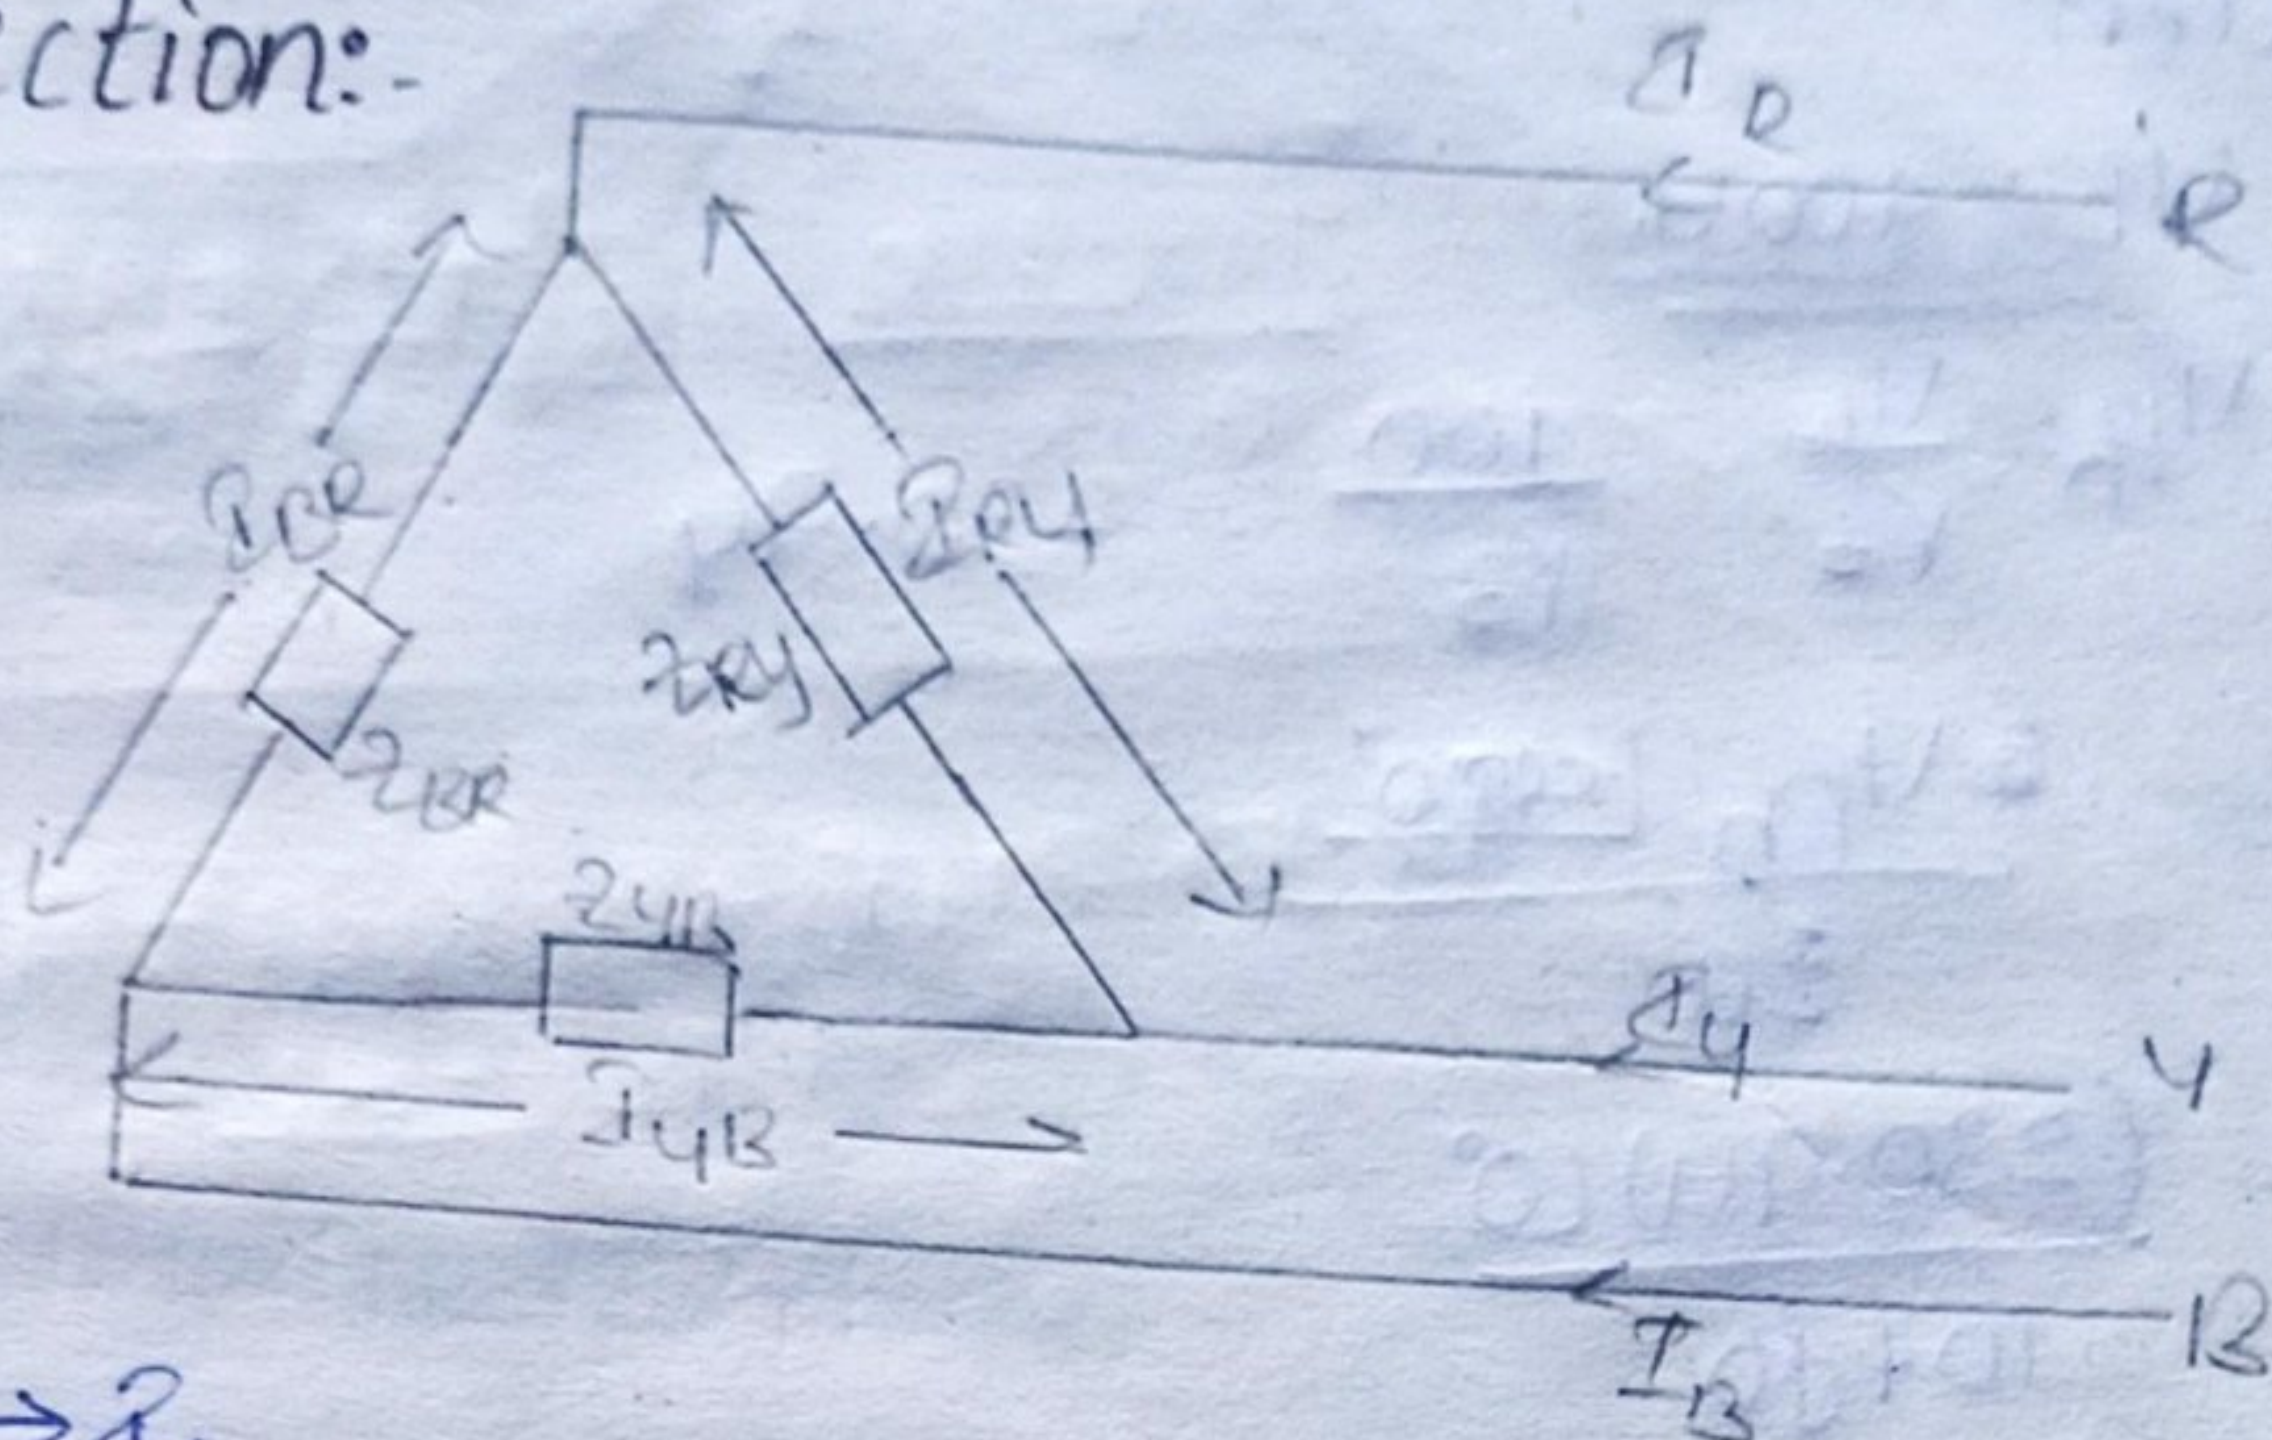 ction:-
I R
R
I BR
I RY
Z RY
Z BR
Z YB
I Y
Y
I YB
B
I B